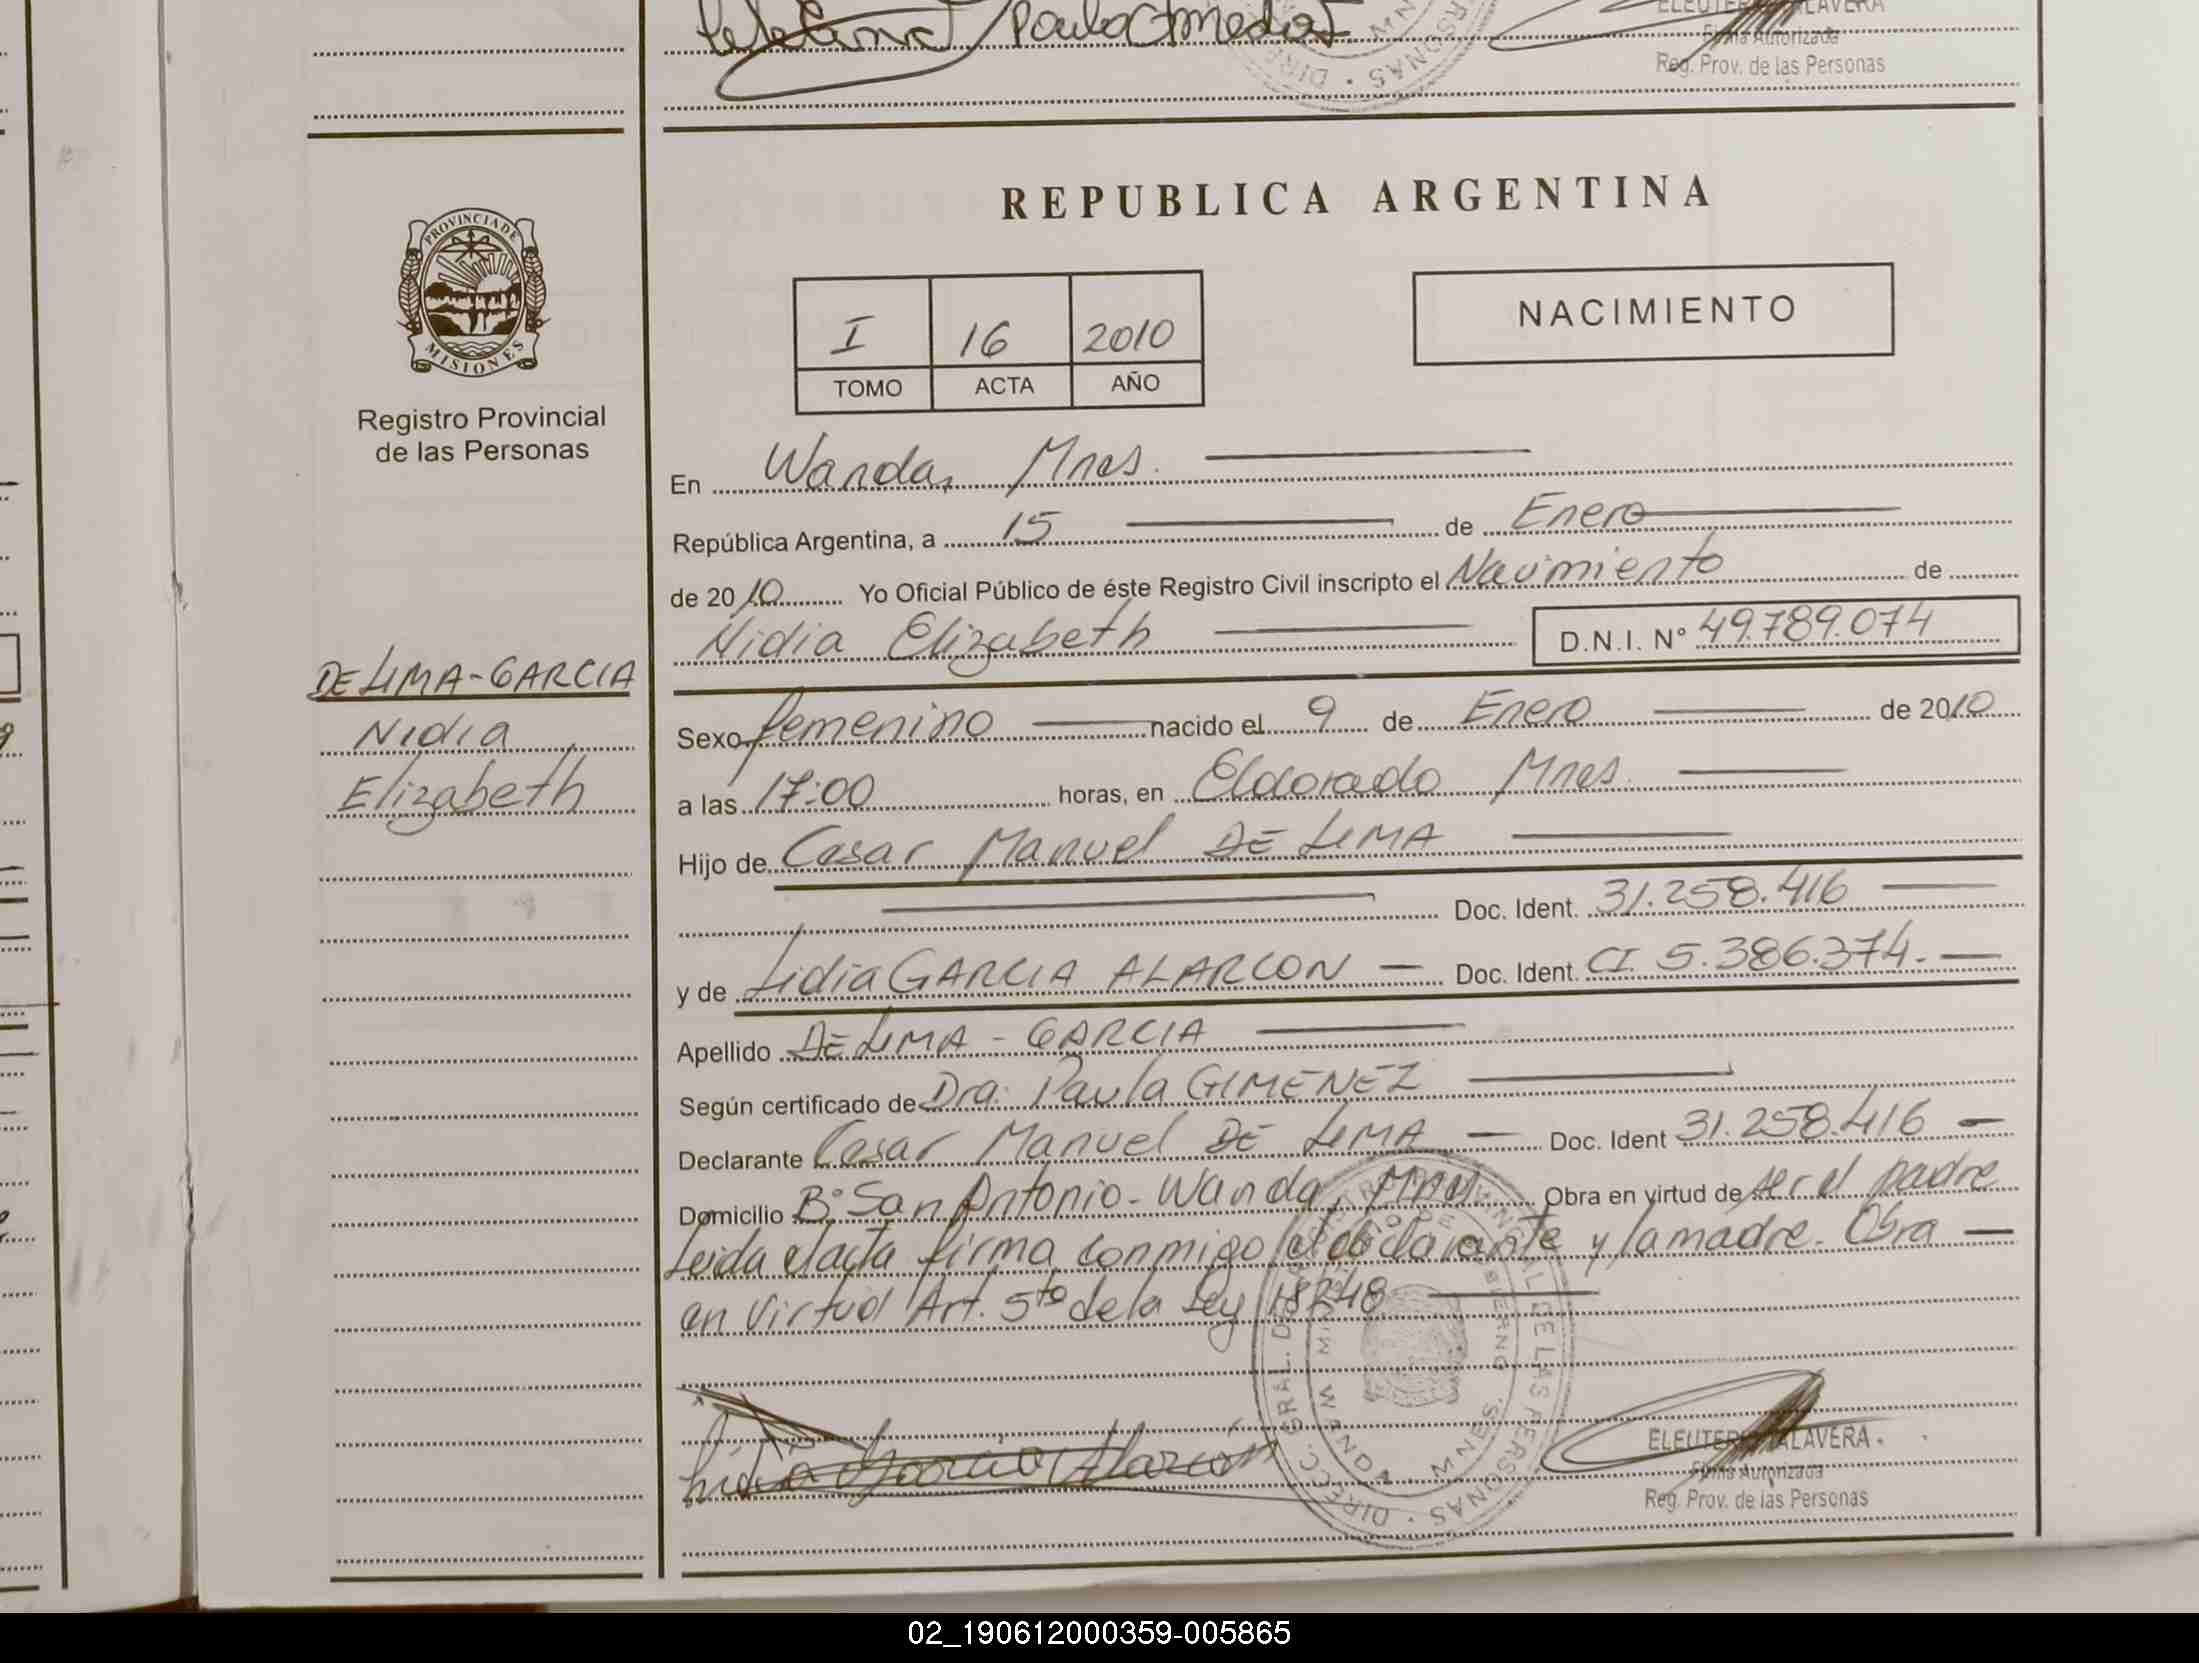 Paula
ELEUTERIO TALAVERA
Firma Autorizada
Reg. Prov. de las Personas
REPUBLICA ARGENTINA
PROVINCIA DE
MISIONES
Registro Provincial
de las Personas
I 16 2010
TOMO ACTA AÑO
NACIMIENTO
En Wanda, Mnes.
República Argentina, a 15 de Enero
de 2010 Yo Oficial Público de éste Registro Civil inscripto el Nacimiento de
Nidia Elizabeth D.N.I. N° 49.789.074
DE LIMA-GARCIA
Nidia
Elizabeth
Sexo femenino nacido el 9 de Enero de 2010
a las 17:00 horas, en Eldorado Mnes.
Hijo de Cesar Manuel DE LIMA
Doc. Ident. 31.258.416
y de Lidia GARCIA ALARCON Doc. Ident. CI. 5.386.374.-
Apellido DE LIMA - GARCIA
Según certificado de Dra. Paula GIMENEZ
Declarante Cesar Manuel DE LIMA Doc. Ident 31.258.416
Domicilio B° San Antonio - Wanda, Mnes. Obra en virtud de ser el padre
Leida el acta firma conmigo el declarante y la madre. Obra
en virtud Art. 5to de la Ley 18248
Lidia Garcia Alarcón
WANDA - MNES.
ELEUTERIO TALAVERA
Firma Autorizada
Reg. Prov. de las Personas
02_190612000359-005865